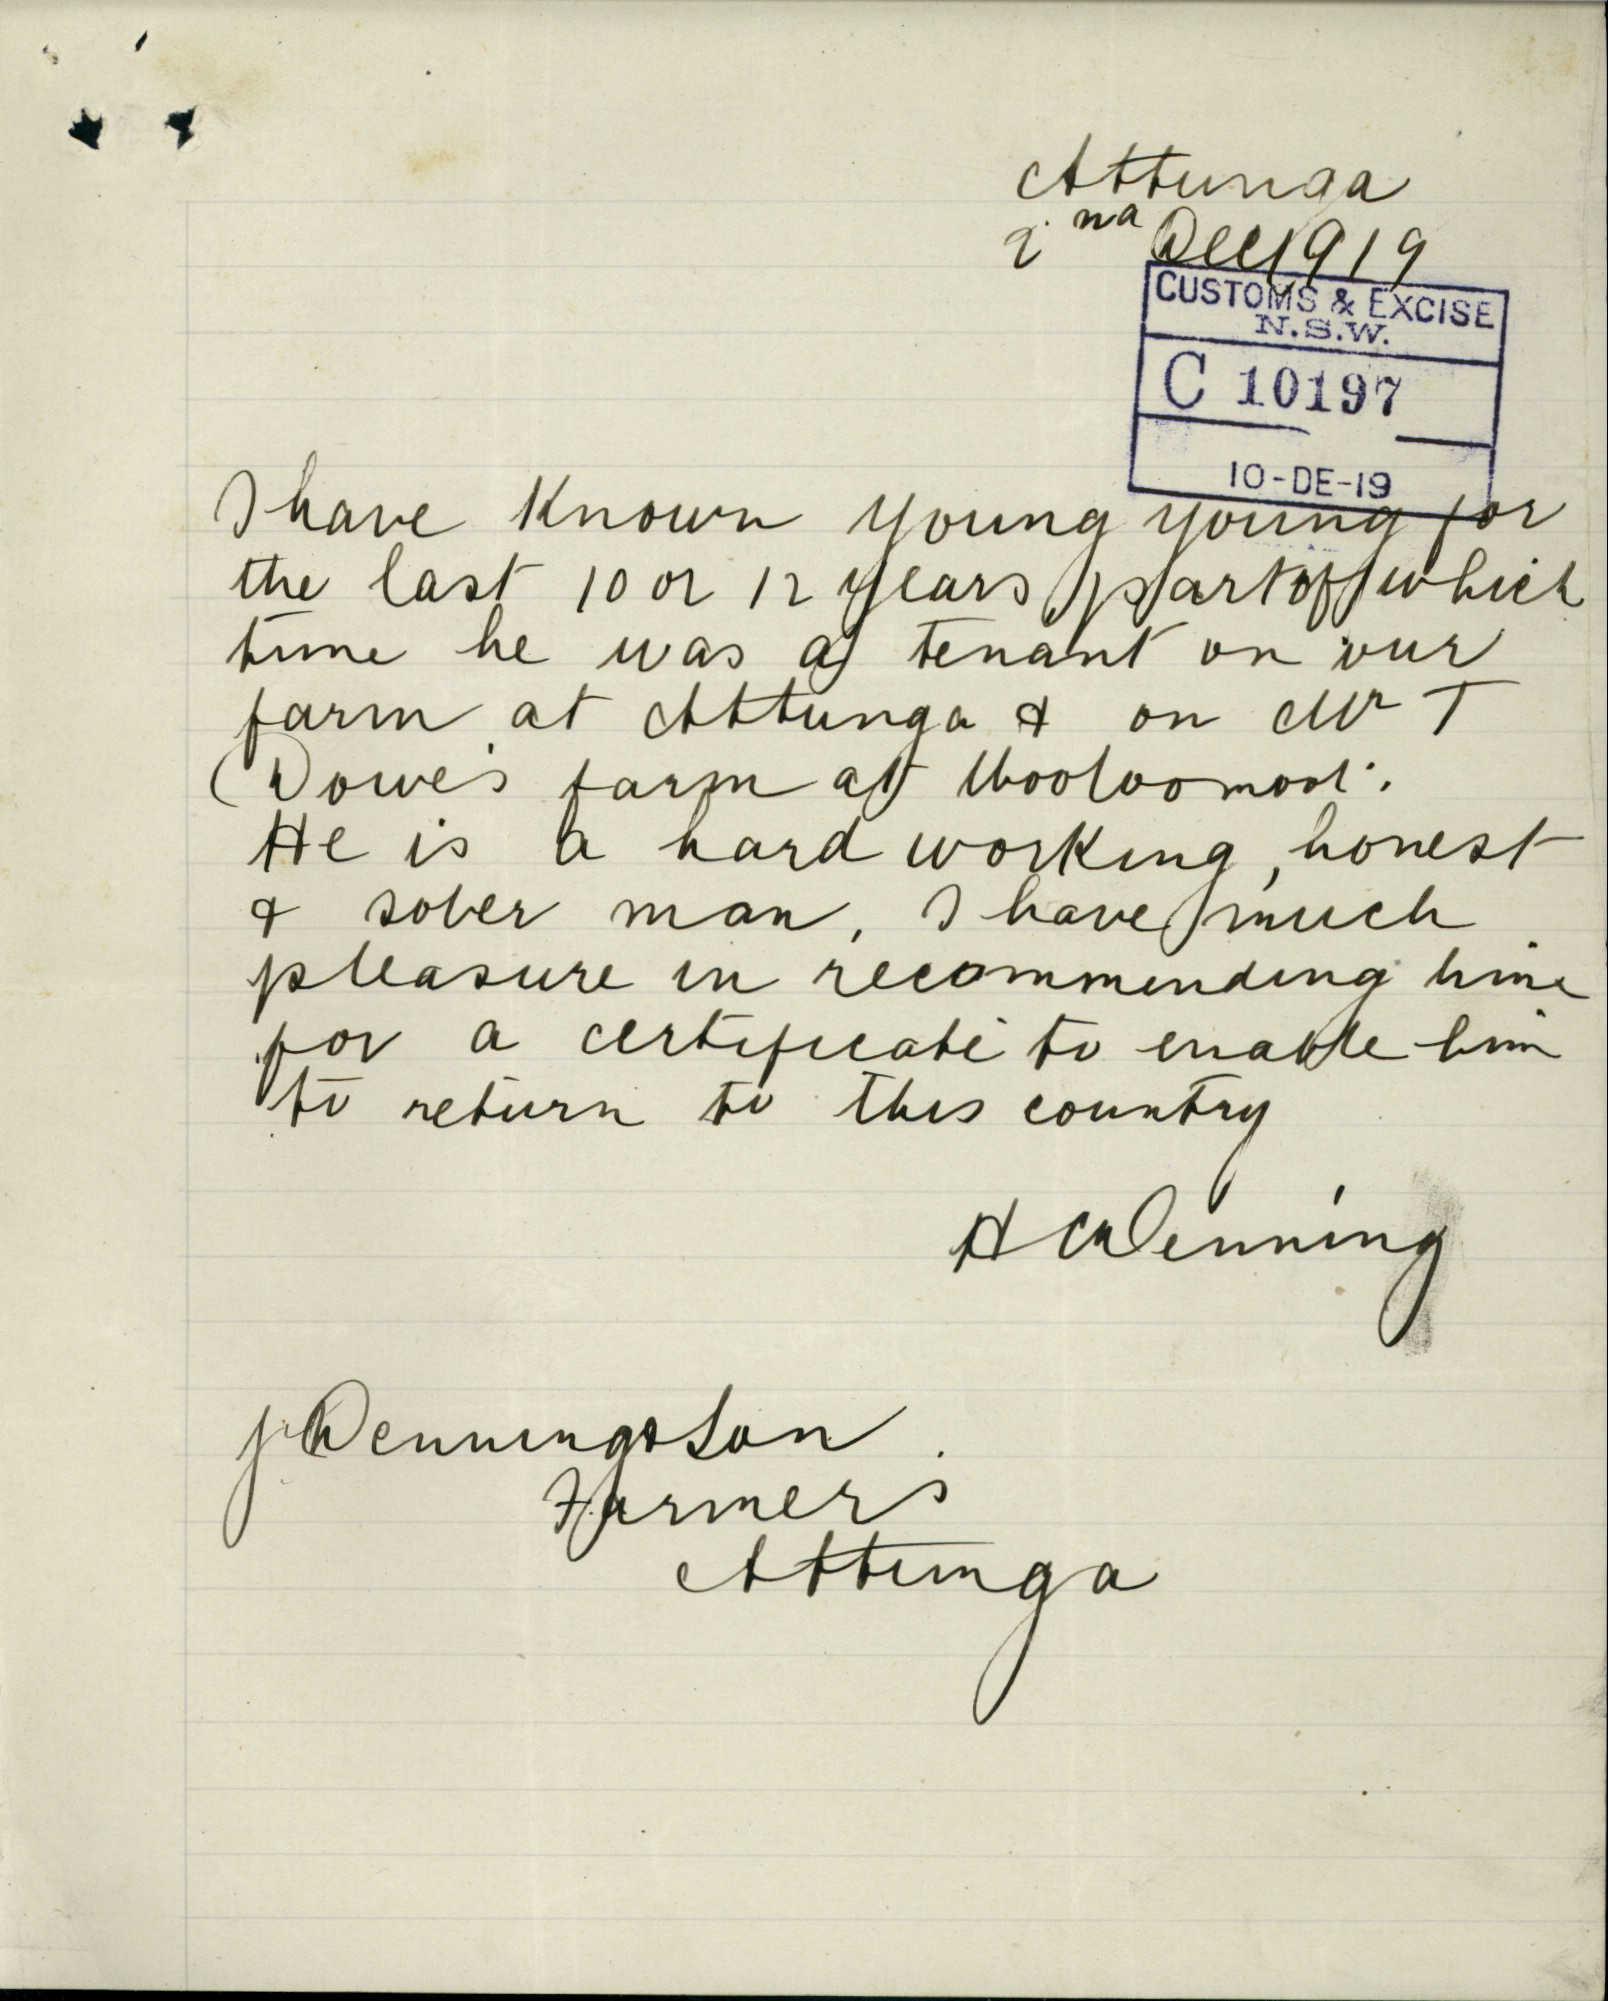 Attunga
2nd Dec 1919
CUSTOMS & EXCISE
N.S.W.
C 10197
10-DE-19
I have known Young Young for
the last 10 or 12 years part of which
time he was a tenant on our
farm at Attunga & on Mr T
Dowe's farm at Wooloomool.
He is a hard working, honest
& sober man, I have much
pleasure in recommending him
for a certificate to enable him
to return to this country
H Denning
J Denning & Son
Farmers
Attunga